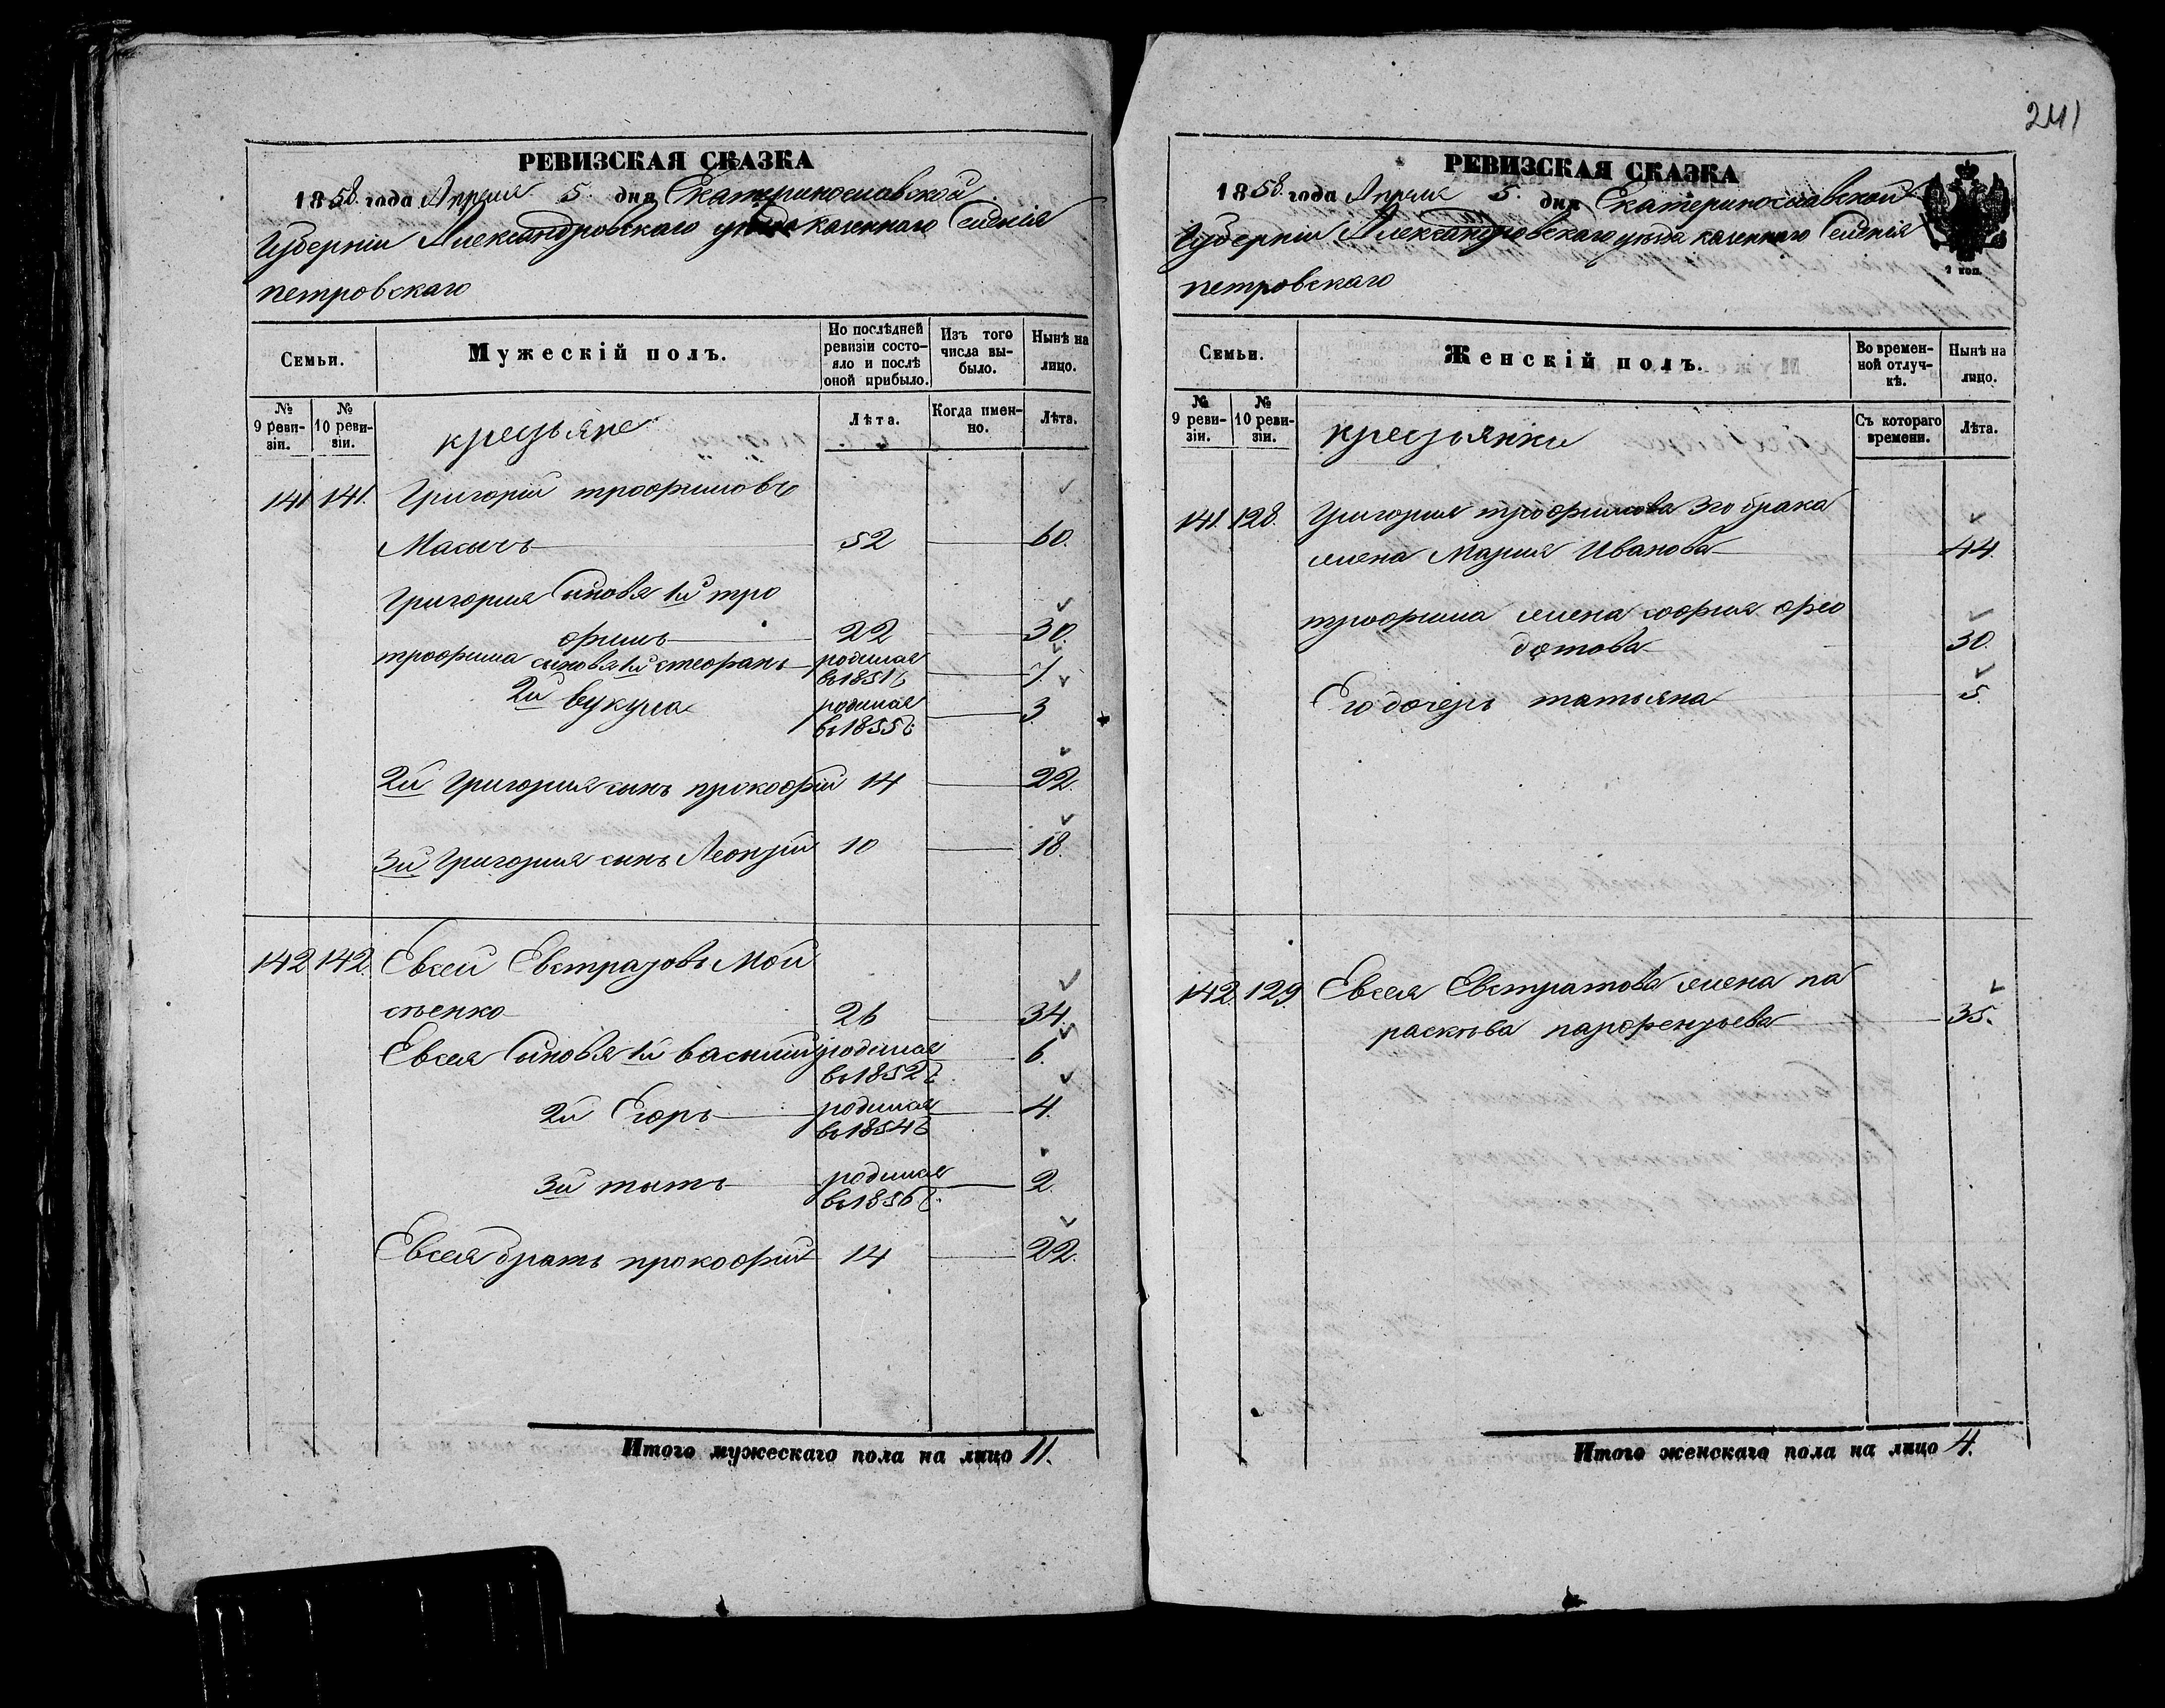 241
РЕВИЗСКАЯ СКАЗКА
1858 года Апреля 5 дня Екатеринославской
Губернии Александровского уезда казенного Селенія
петровскаго
Семьи.
Мужескій полъ.
По послѣдней ревизіи состо-яло и послѣ оной прибыло.
Изъ того числа вы-было.
Нынѣ на лицо.
№ 9 реви-зіи.
№ 10 реви-зіи.
крестьяне
Лѣта.
Когда имен-но.
Лѣта.
141 141. Григорій трофимовъ
Масычъ 52 60.
Григория Синовя 1й тро
фимъ 22 30.
трофима сыновя 1й стефанъ родился в 1851 г 7.
2й вукула родился в 1855 г 3
2й Григория сынъ прокофий 14 22.
3й Григория сынъ Леонтий 10 18.
142 142. Евсей Евстратовъ Мой
сѣенко 26 34.
Евсея Синовя 1й василий родился в 1852 г 6.
2й Егоръ родился в 1854 г 4.
3й титъ родился в 1856 г. 2.
Евсея братъ прокофий 14 22.
Итого мужескаго пола на лицо 11.
РЕВИЗСКАЯ СКАЗКА
1858 года Апреля 5. дня Екатеринославской
Губерніи Александровскаго уезда казеннаго Селенія
петровскаго
2 коп.
Семьи.
Женскій полъ.
Во времен-ной отлуч-кѣ.
Нынѣ на лицо.
№ 9 реви-зіи.
№ 10 реви-зіи.
крестьянки
Съ котораго времени.
Лѣта.
141. 128. Григория трофимова 3го брака
жена Мария Иванова 44.
трофима жена софия фео
дотова 30.
Его дочерь татьяна 5.
142. 129 Евсея Евстратова жена па
раскѣва парфентьева 35.
Итого женскаго пола на лицо 4.